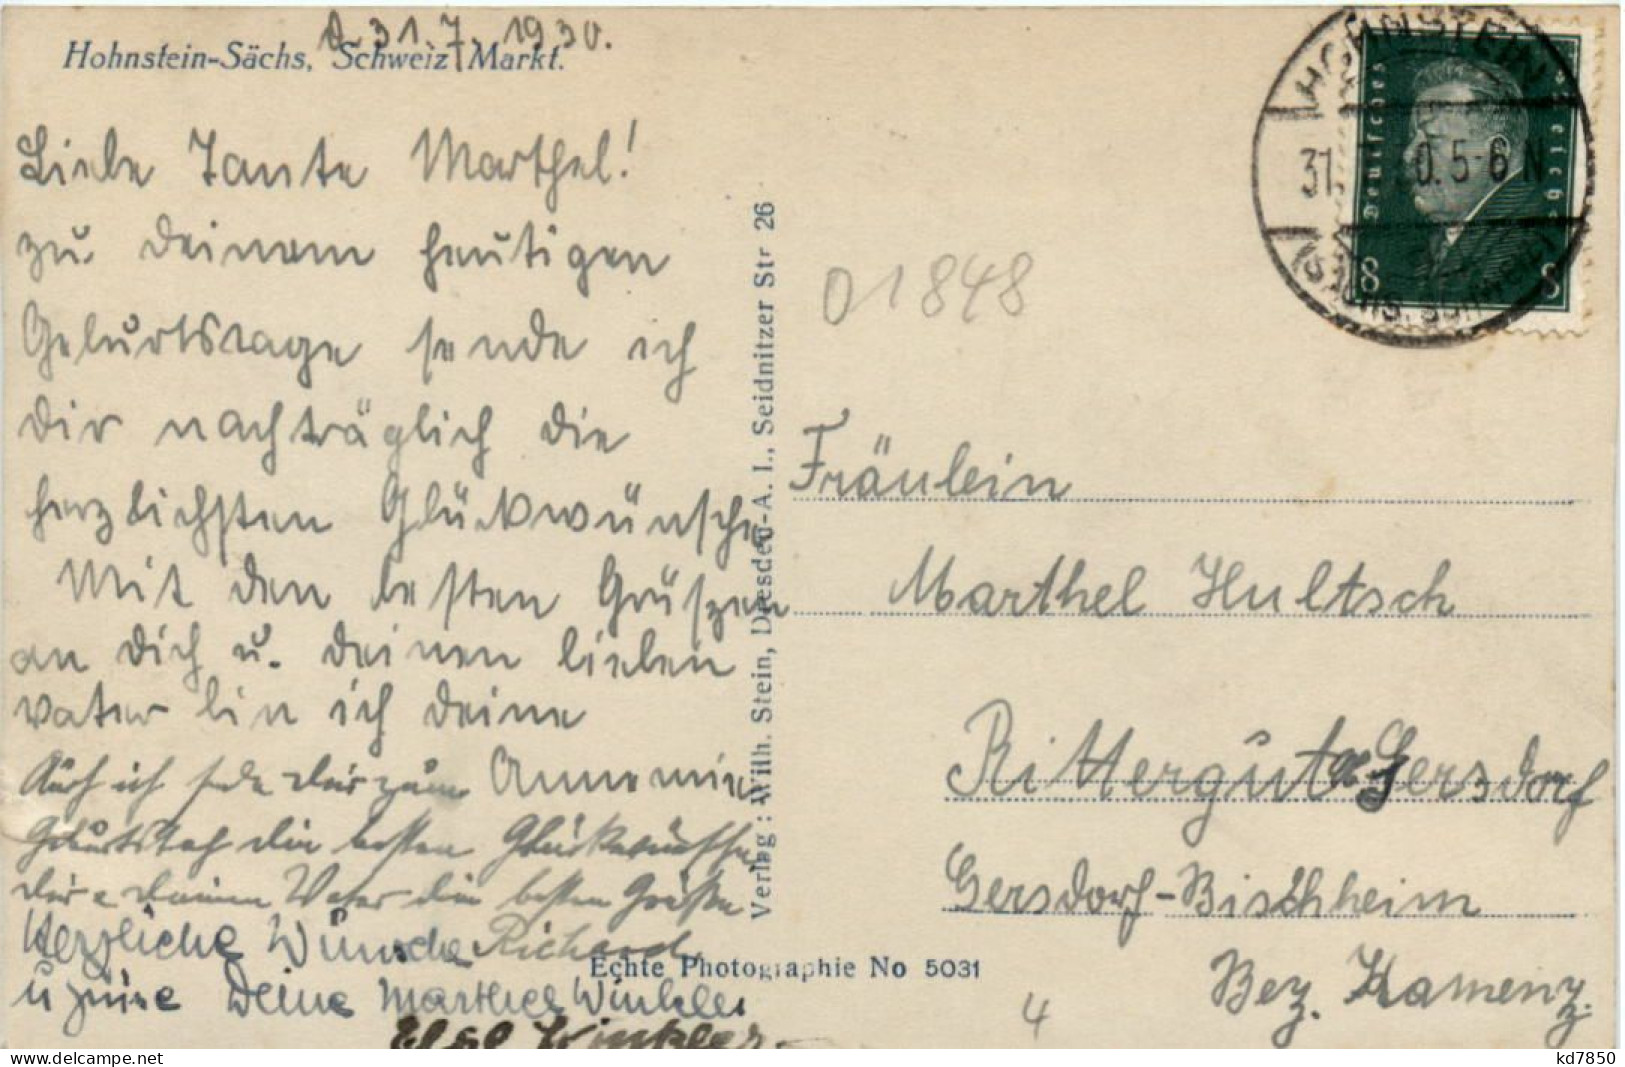 d. 31. 7. 1930.
Hohnstein-Sächs. Schweiz Markt.
Liebe Tante Marthel!
zu deinem heutigen
Geburtstage sende ich
dir nachträglich die
herzlichsten Glückwünsche
Mit den besten Grüßen
an dich u. deinen lieben
Vater bin ich deine
Annemie
Auch ich sende dir zum
Geburtstag die besten Glückwünsche
dir u. deinem Vater die besten Grüße
Richard
Herzliche Wünsche
u Grüße Deine Marthel Winkler
Elsel Winkler.
Verlag: Wilh. Stein, Dresden-A. 1., Seidnitzer Str 26
Echte Photographie No 5031
HOHNSTEIN
31. 0. 5-6 N
(SÄCHS. SCHWEIZ)
Deutsches Reich
8 8
01848
Fräulein
Marthel Hultsch
Rittergut Gersdorf
Gersdorf-Bischheim
Bez. Kamenz.
4
delcampe.net
kd7850